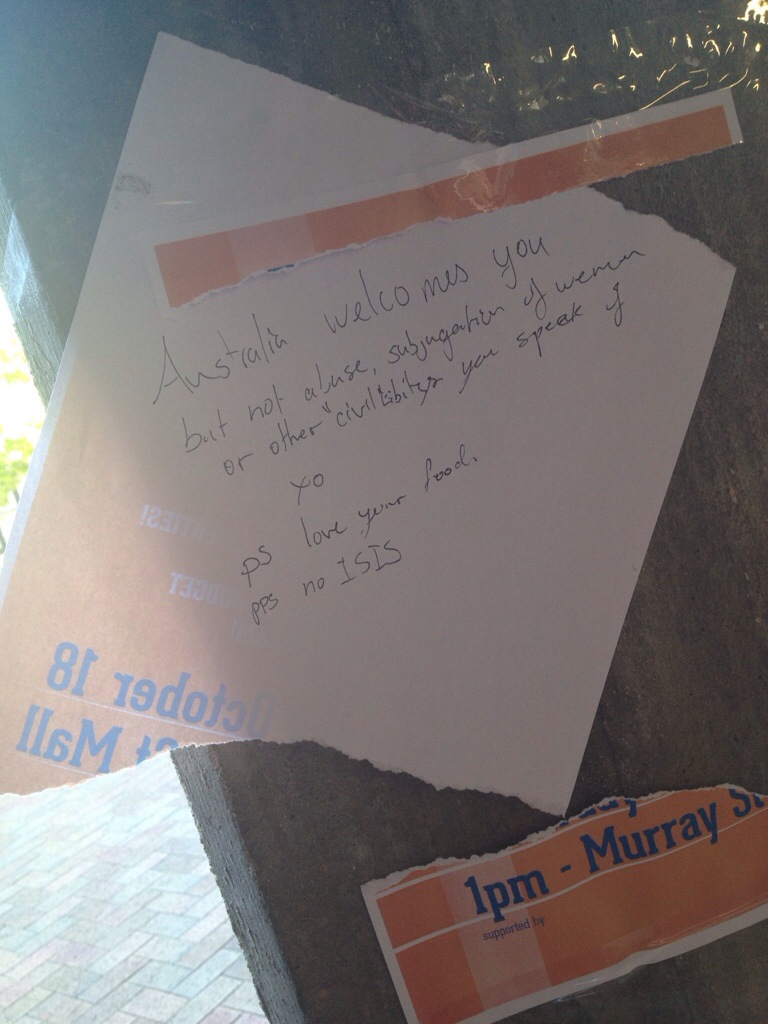 Australia welcomes you
but not abuse, subjugation of women
or other "civil libitys you speak of
xo
ps love your food.
pps no ISIS
October 18
St Mall
1pm - Murray St
supported by